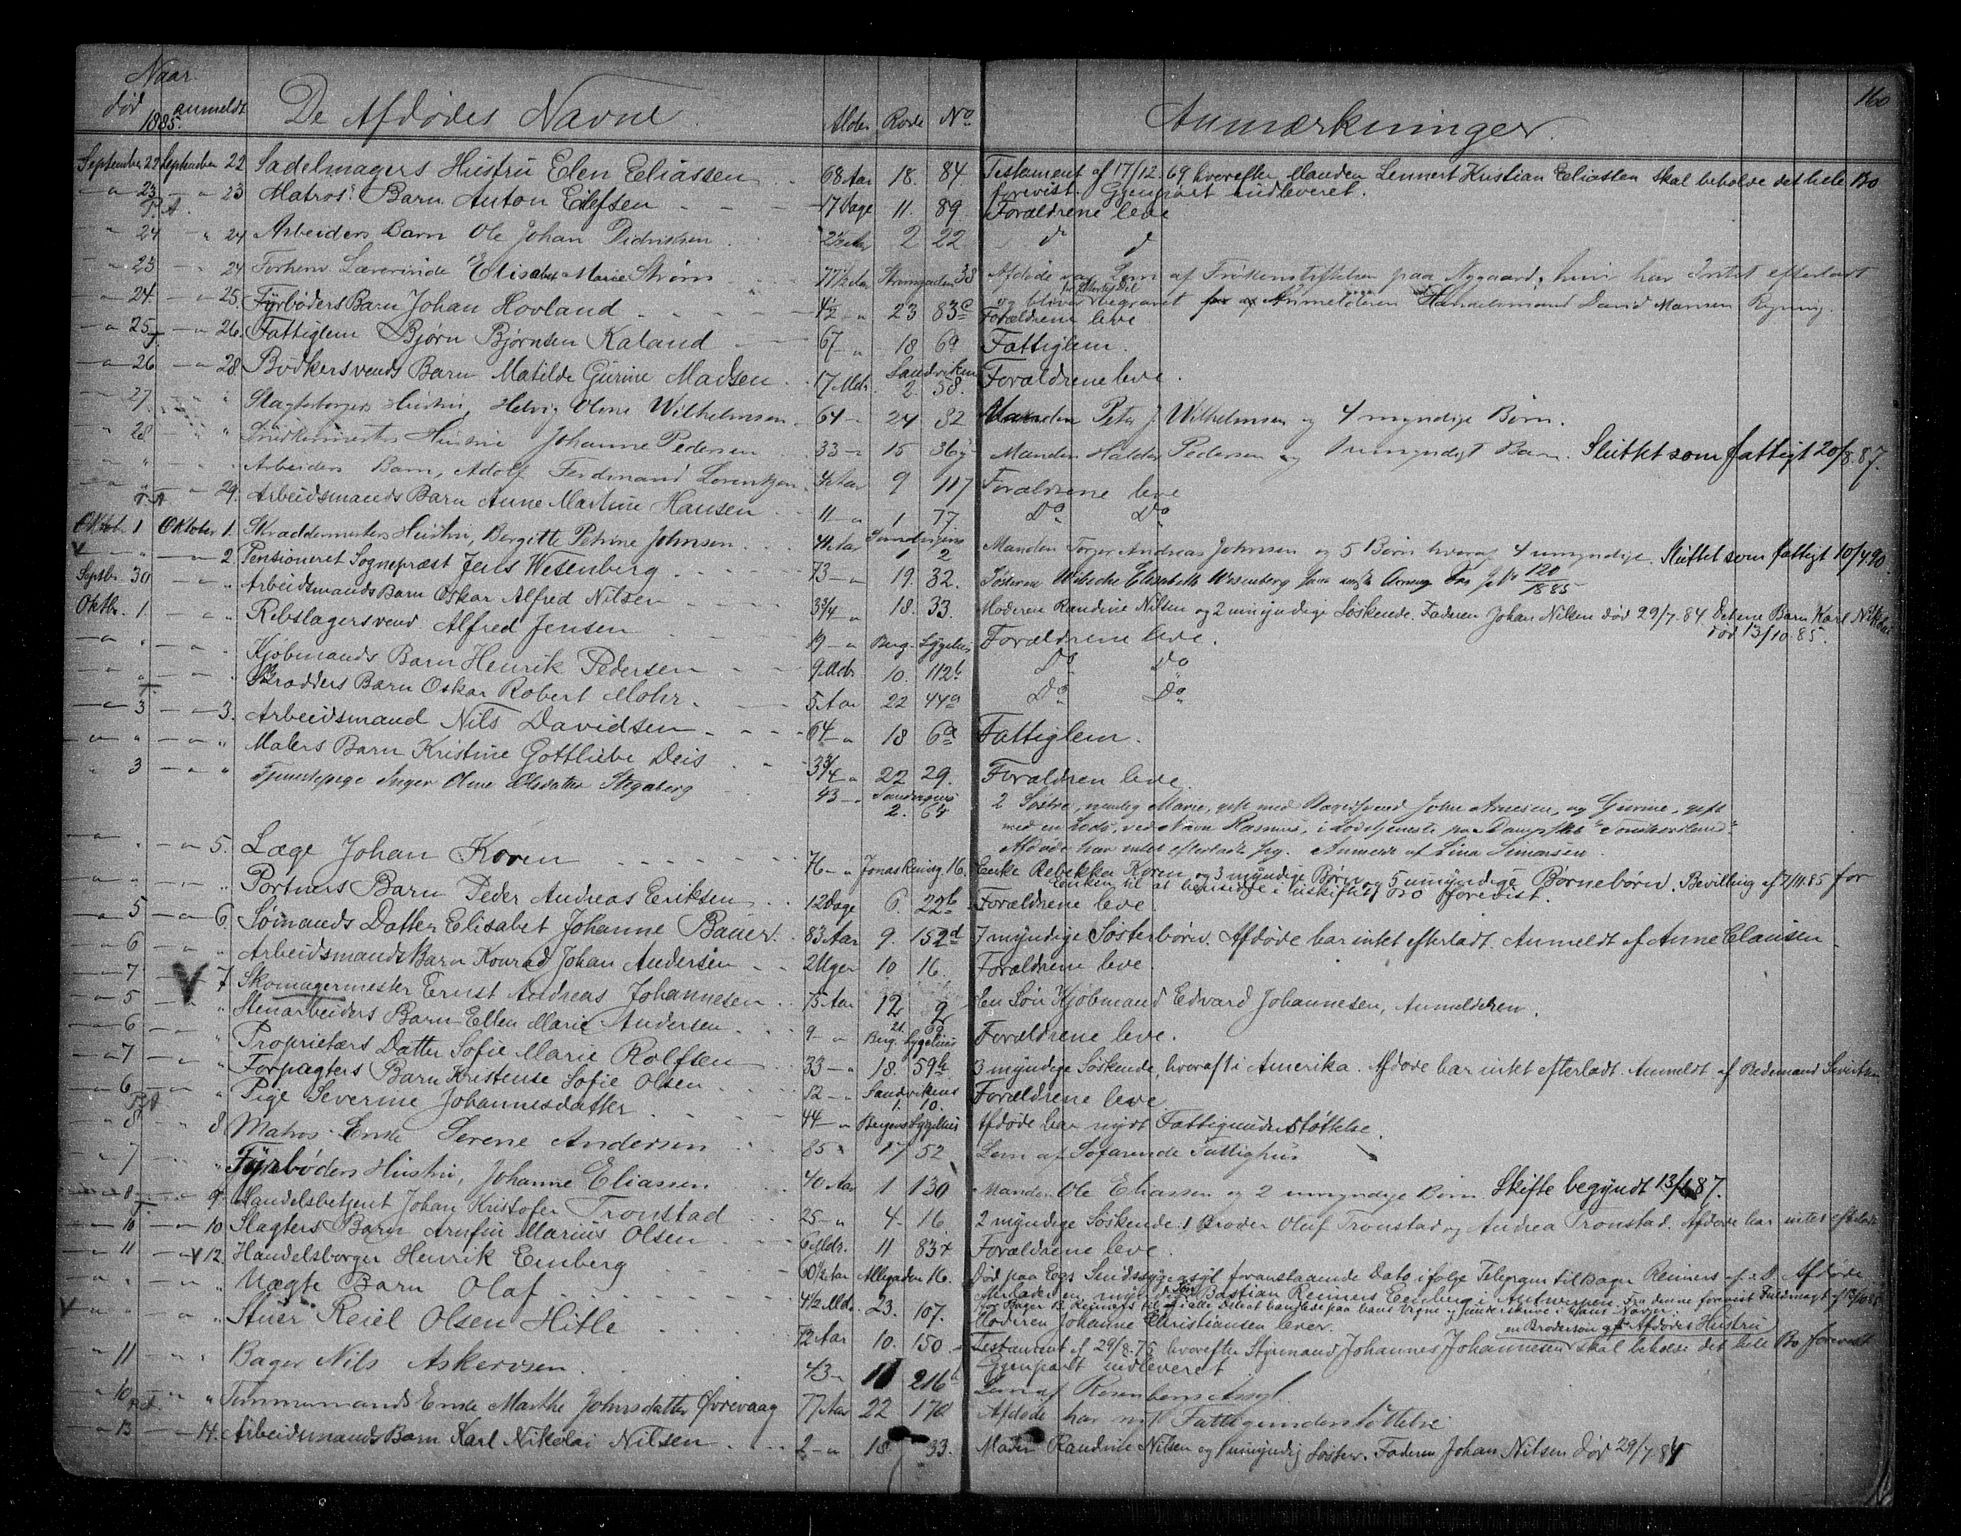 Naar
død anmeldt De Afdødes Navne Alder Rode No Anmærkninger. 160
1885.
September 22 September 22 Sadelmagers Hustru Elen Eliassen 68 Aar 18. 84 Testament af 17/12.69 hvorefter Manden Lennert Kristian Eliassen skal beholde det hele Bo
forevist. Gjenpart indleveret.
23 23 Matros' Barn Anton Eilefsen 17 Dage 11. 89 Forældrene leve
24 24 Arbeiders Barn Ole Johan Didriksen 2½ Aar 2 22 do do
23 24 Forhenv. Lærerinde Elisabet Marie Strøm 77½ Aar Strangaden 38 Afdøde var Lem af Frøkenstiftelsen paa Nygaard, hun har Intet efterladt
og bliver begravet Anmelderen Handelsmand David Monsen Regning.
24. 25. Fyrbøders Barn Johan Hovland 4½ " 23 83c Forældrene leve
25 26. Fattiglem Bjørn Bjørnsen Kaland 67 " 18 6a Fattiglem.
26 28 Bødkersvends Barn Matilde Gurine Madsen 17 Mdr. Sandviken 2. 58. Forældrene leve.
27. " Slagterborgers Hustru, Helvig Oline Wilhelmsen 64 " 24 32 Manden Peter J. Wilhelmsen og 4 myndige Børn.
28 " Snedkermesters Hustru Johanne Pedersen 33 " 15 36 Manden Halder Pedersen og 1 umyndigt Barn. Sluttet som fattigt 20/8.87.
" " Arbeiders Barn, Adolf Ferdinand Lorentzen Aar 9 117 Forældrene leve
" 29. Arbeidsmands Barn Anne Martine Hansen 11 " 1 77. Do Do
Oktob. 1 Oktober 1. Skræddermesters Hustru, Bergitte Petrine Johnsen Aar Sandvigens 1 2 Manden Torger Andreas Johnsen og 5 Børn hvoraf 4 umyndige. Sluttet som fattigt 10/4.90.
V " " 2. Pensioneret Sognepræst Jens Wesenberg 73 " 19. 32. Søsteren Elisabeth Wesenberg 120/1885
Septbr. 30 " Arbeidsmands Barn Oskar Alfred Nilsen 3¾ " 18. 33. Moderen Randine Nilsen og 2 umyndige Søskende. Faderen Johan Nilsen død 29/7.84. Det ene Barn Karl Nikolai
død 13/10.85.
Oktbr. 1 " Rebslagersvend Alfred Jensen 19 " Berg. Sygehus Forældrene leve.
" " Kjøbmands Barn Henrik Pedersen 9 Mdr. 10. 112b Do Do
" " Skrædders Barn Oskar Robert Mohr. 5 Aar 22 44a Do Do
3 3. Arbeidsmand Nils Davidsen 64 " 18 6a Fattiglem.
" " Malers Barn Kristine Gottliebe Deis 3¾ " 22 29. Forældren leve.
3 " Tjenestepige Inger Oline Olsdatter Stegaberg 43 " Sandvigens 2. 64 2 Søstre, nemlig Marie, gift med John Arnesen, og Gurine, gift
med en Lods, ved Navn Rasmus, i Lodstjeneste paa Dampskib "Søndhordland".
Afdøde har intet efterladt sig. Anmeldt af Lina Simonsen.
" 5. Læge Johan Koren 76 " Jonas Reinsg 16. Enke Rebekka Koren og 3 myndige Børn og 5 umyndige Børnebørn. Bevilling af 7/11.85 for
Enken til at hensidde i uskiftet Bo forevist.
" " Portners Barn Peder Andreas Eriksen 12 Dage 6. 22b Forældrene leve.
5 6. Sømands Datter Elisabet Johanne Bauer. 83 Aar 9. 152d 7 myndige Søsterbørn. Afdøde har intet efterladt. Anmeldt af Anne Clausen.
6 " Arbeidsmands Barn Konrad Johan Andersen 2 Uger 10 16. Forældrene leve.
7 V 7 Skomagermester Ernst Andreas Johannesen 75 Aar 12 9 En Søn Kjøbmand Edvard Johannesen, Anmelderen.
5 " Stenarbeiders Barn Ellen Marie Andersen 9 " 21. Forældrene leve.
6 " Proprietærs Datter Sofie Marie Rolfsen 33 " Berg. Sygehus 3 myndige Søskende, hvoraf 1 i Amerika. Afdøde har intet efterladt. Anmeldt af Bedemand Sivertsen
7 " Forpagters Barn Kristense Sofie Olsen 12 " 18. 59b Forældrene leve
6 " Pige Severine Johannesdatter 44 " Sandvikens 1. 10. Afdøde har nydt Fattigunderstøttelse.
8 8 Matros' Enke Serene Andersen 85 Bergens Sygehus 17 52 Lem af Søfarende Fattighus
7 " Fyrbøders Hustru, Johanne Eliassen 40 Aar 1 130 Manden Ole Eliassen og 2 umyndige Børn. Skifte begyndt 87.
8 9. Handelsbetjent Johan Kristofer Tronstad 25 " 4 16 2 myndige Søskende: 1 Broder Oluf Tronstad og Andrea Tronstad. Afdøde har intet efterladt
10 10 Slagters Barn Arnfin Marius Olsen 6 Mdr. 11 83 Forældrene leve.
11 V 12. Handelsborger Henrik Eenberg 60½ Aar Allegaden 16. Død paa Eegs Sindssygeasyl foranstaaende Dato ifølge Telegram til Bager Reiners af d.D. Afdøde
efterlader en myndig Søn Bastian Reiners Eenberg i Antwerpen. Fra denne forevist Fuldmagt af 13/10.85
for Bager B. Reiners til i alle Dele at handle paa hans Vegne og underskrive i hans Navn.
" " Uægte Barn Olaf 4½ Mdr. 23. 107. Moderen Johanne Christiansen lever.
V " " Stuer Reiel Olsen Hitle 72 Aar 10. 150 Testament af 29/8.75 hvorefter Styrmand Johannes Johannesen en Brodersøn af Afdødes Hustru skal beholde det hele Bo forevist
Gjenpart indleveret
11 " Bager Nils Askervsen 43 " 11 216b Lem af Rosenbergs Asyl
10 " Tømmermands Enke Marthe Johnsdatter Øvrevaag 77 Aar 22 170 Afdøde har nydt Fattigunderstøttelse
13 14. Arbeidsmands Barn Karl Nikolai Nilsen 2 " 18 33. Moder Randine Nilsen og 1 umyndig Søster. Faderen Johan Nilsen død 29/7.84